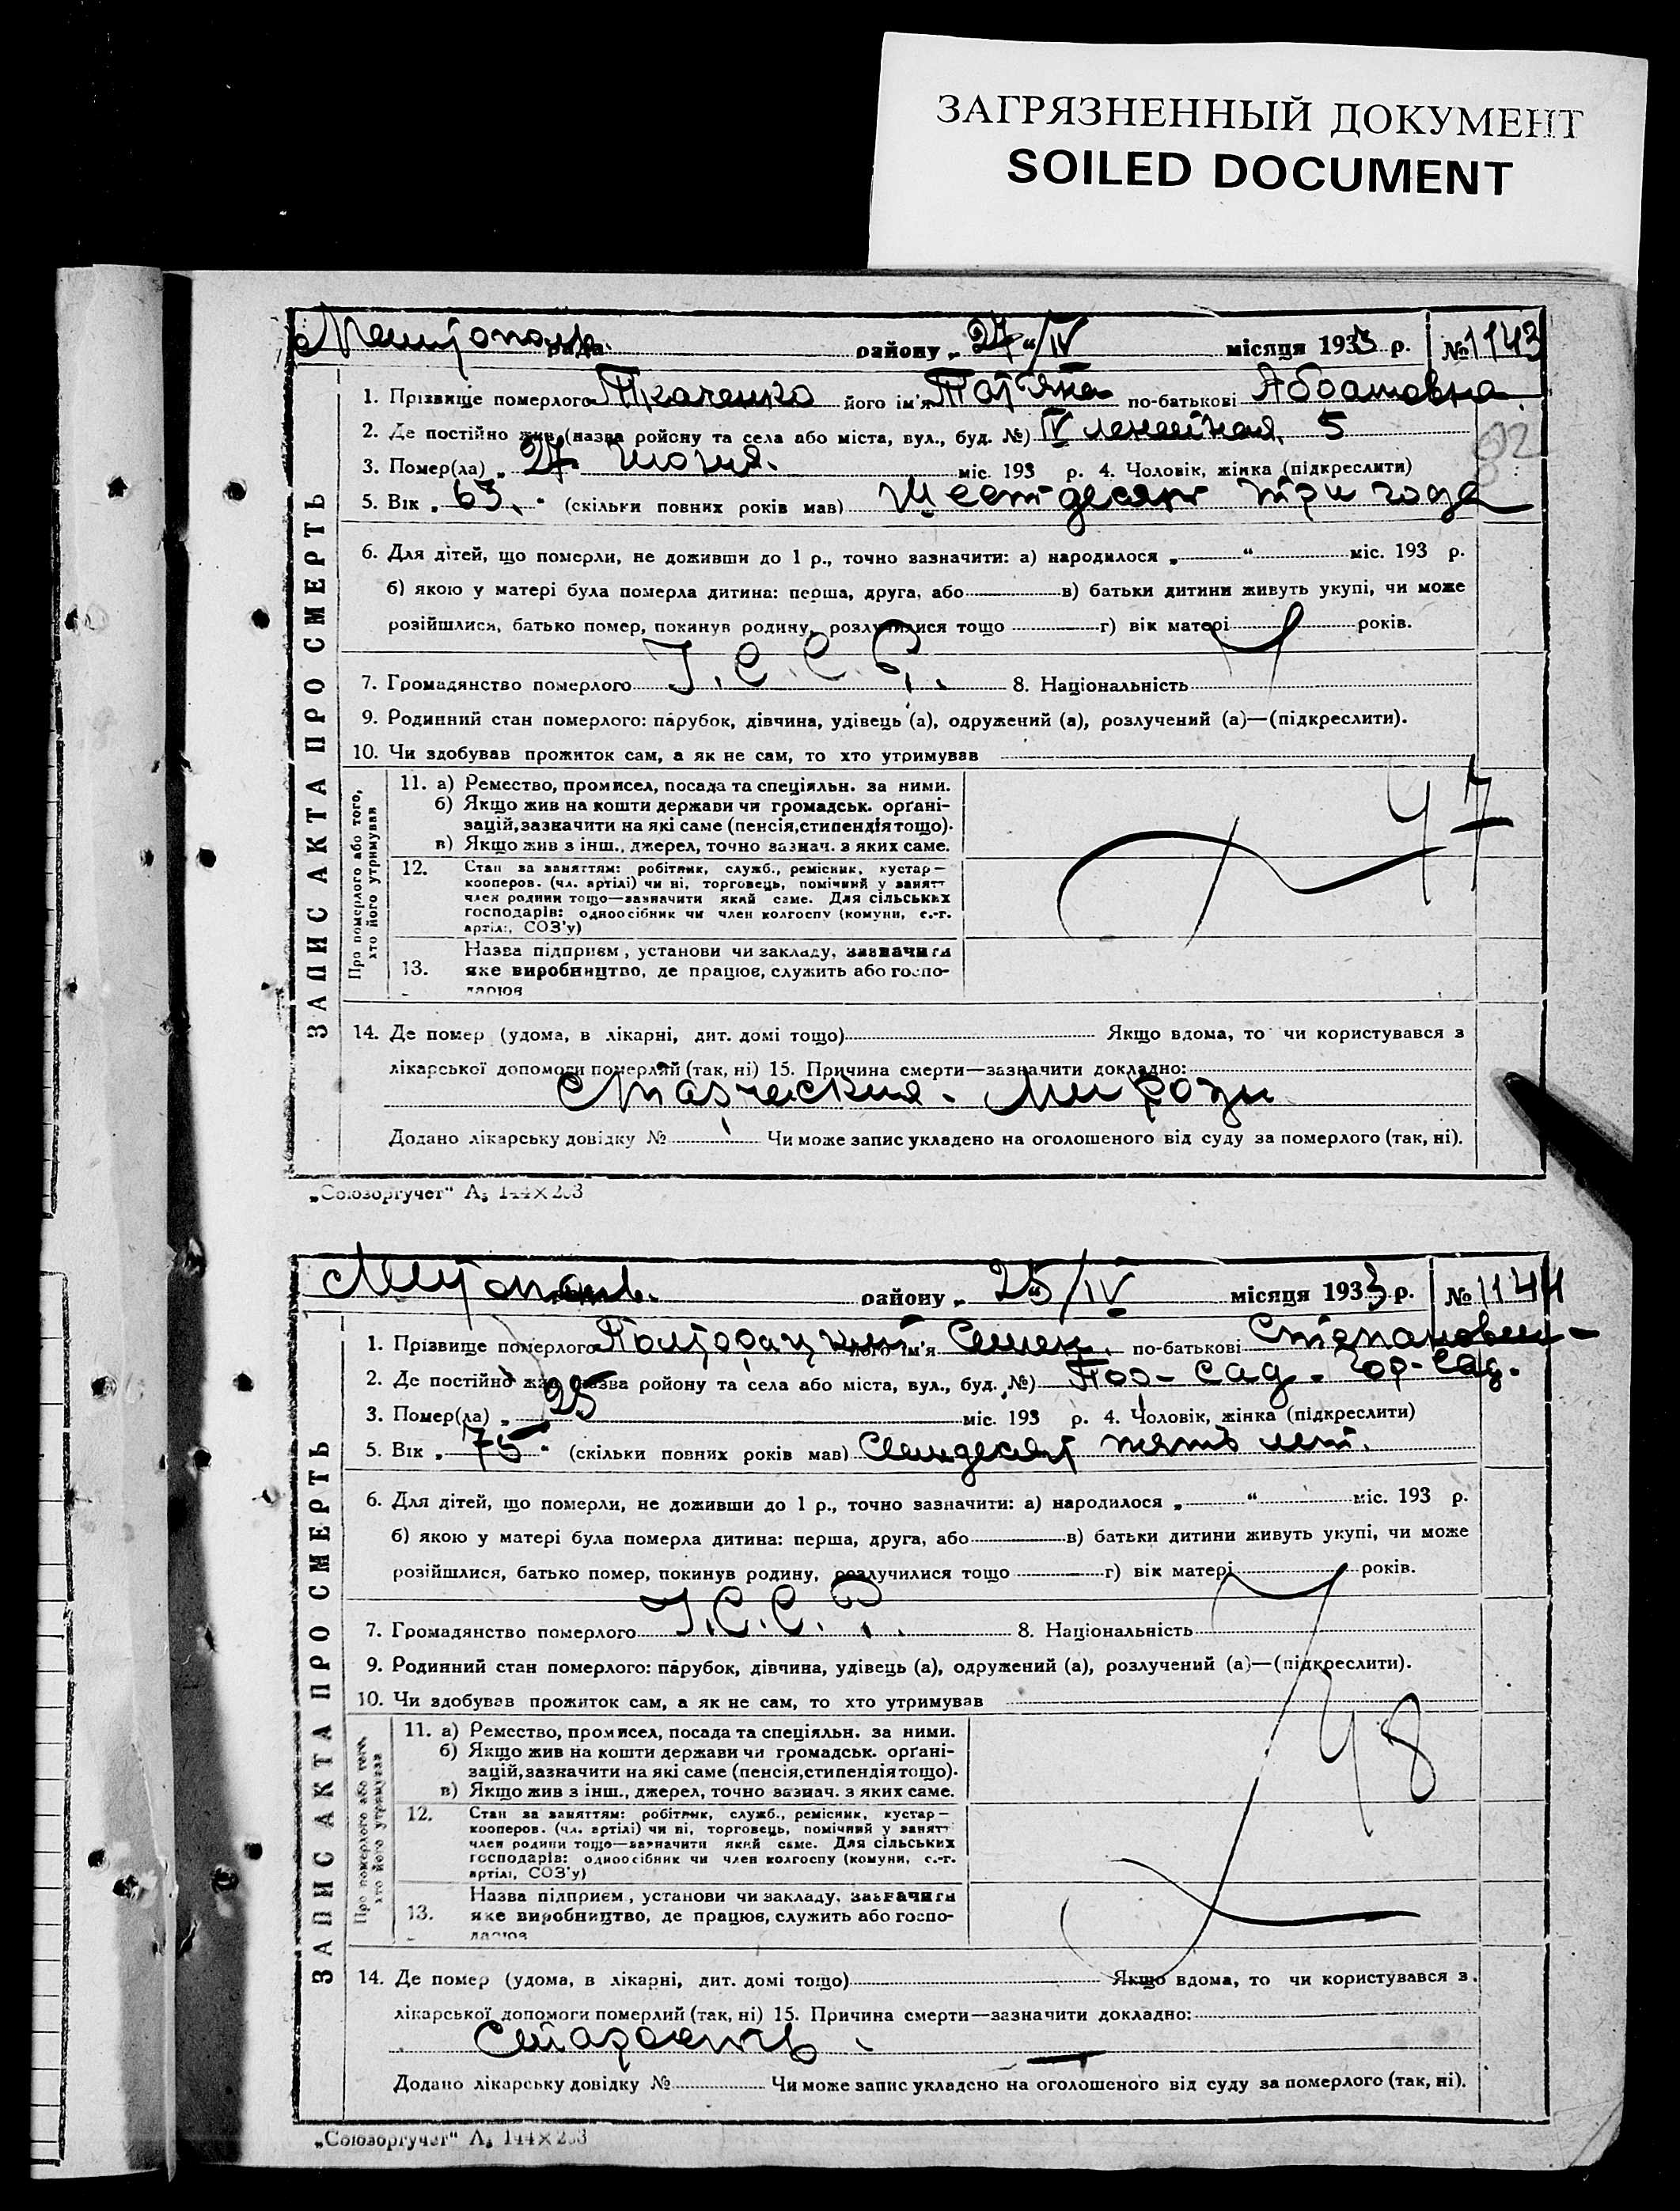 ЗАГРЯЗНЕННЫЙ ДОКУМЕНТ
SOILED DOCUMENT
рада району „27“/IV місяця 1933 р. № 1143
ЗАПИС АКТА ПРО СМЕРТЬ
1. Прізвище померлого Ткаченко його ім'я Татʼяна по-батькові
2. Де постійно жив (назва району та села або міста, вул., буд. №) IV 5
92
3. Помер(ла) „27 міс. 193 р. 4. Чоловік, жінка (підкреслити)
5. Вік „63.“ (скільки повних років мав) Шестдесят три года
6. Для дітей, що померли, не доживши до 1 р., точно зазначити: а) народилося „ “ міс. 193 р.
б) якою у матері була померла дитина: перша, друга, або в) батьки дитини живуть укупі, чи може
розійшлися, батько помер, покинув родину, розлучилися тощо г) вік матері років.
7. Громадянство померлого У.С.С.Р. 8. Національність
9. Родинний стан померлого: парубок, дівчина, удівець (а), одружений (а), розлучений (а)—(підкреслити).
10. Чи здобував прожиток сам, а як не сам, то хто утримував
Про померлого або того, хто його утримував
11. а) Ремество, промисел, посада та спеціяльн. за ними.
б) Якщо жив на кошти держави чи громадськ. орґані-
зацій, зазначити на які саме (пенсія, стипендія тощо).
в) Якщо жив з інш., джерел, точно зазнач. з яких саме.
47
12. Стан за заняттям: робітник, служб., ремісник, кустар—
кооперов. (чл. артілі) чи ні, торговець, помічний у занятт
член родини тощо—зазначити який саме. Для сільських
господарів: одноосібник чи член колгоспу (комуни, с.-г.
артілі, СОЗ'у)
13. Назва підприєм, установи чи закладу, зазначити
яке виробництво, де працює, служить або госпо-
дарює
14. Де помер (удома, в лікарні, дит. домі тощо) Якщо вдома, то чи користувався з
лікарської допомоги померлий (так, ні) 15. Причина смерти—зазначити докладно:
Додано лікарську довідку № Чи може запис укладено на оголошеного від суду за померлого (так, ні).
„Союзоргучет“ А₅ 144×203
району „25“/IV місяця 1933 р. № 1144
ЗАПИС АКТА ПРО СМЕРТЬ
1. Прізвище померлого його ім'я Семен по-батькові
2. Де постійно жив (назва району та села або міста, вул., буд. №) сад. Гор-Сад.
3. Помер(ла) „25 міс. 193 р. 4. Чоловік, жінка (підкреслити)
5. Вік „75“ (скільки повних років мав) Семдесят пять лет.
6. Для дітей, що померли, не доживши до 1 р., точно зазначити: а) народилося „ “ міс. 193 р.
б) якою у матері була померла дитина: перша, друга, або в) батьки дитини живуть укупі, чи може
розійшлися, батько помер, покинув родину, розлучилися тощо г) вік матері років.
7. Громадянство померлого У.С.С.Р. 8. Національність
9. Родинний стан померлого: парубок, дівчина, удівець (а), одружений (а), розлучений (а)—(підкреслити).
10. Чи здобував прожиток сам, а як не сам, то хто утримував
Про померлого або того, хто його утримував
11. а) Ремество, промисел, посада та спеціяльн. за ними.
б) Якщо жив на кошти держави чи громадськ. орґані-
зацій, зазначити на які саме (пенсія, стипендія тощо).
в) Якщо жив з інш., джерел, точно зазнач. з яких саме.
48
12. Стан за заняттям: робітник, служб., ремісник, кустар—
кооперов. (чл. артілі) чи ні, торговець, помічний у занятт
член родини тощо—зазначити який саме. Для сільських
господарів: одноосібник чи член колгоспу (комуни, с.-г.
артілі, СОЗ'у)
13. Назва підприєм, установи чи закладу, зазначити
яке виробництво, де працює, служить або госпо-
дарює
14. Де помер (удома, в лікарні, дит. домі тощо) Якщо вдома, то чи користувався з
лікарської допомоги померлий (так, ні) 15. Причина смерти—зазначити докладно:
Старость
Додано лікарську довідку № Чи може запис укладено на оголошеного від суду за померлого (так, ні).
„Союзоргучет“ А₅ 144×203